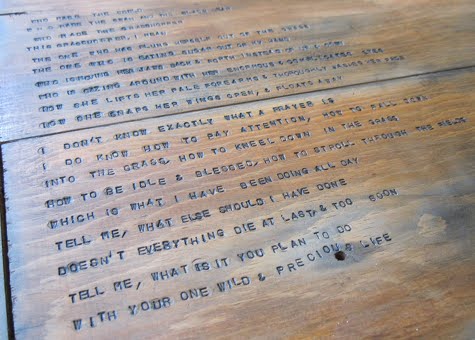 WHO MADE THE WORLD
WHO MADE THE SWAN AND THE BLACK BEAR
WHO MADE THE GRASSHOPPER
THIS GRASSHOPPER, I MEAN
THE ONE WHO HAS FLUNG HERSELF OUT OF THE GRASS
THE ONE WHO IS EATING SUGAR OUT OF MY HAND
WHO IS MOVING HER JAWS BACK & FORTH INSTEAD OF UP & DOWN
WHO IS GAZING AROUND WITH HER ENORMOUS & COMPLICATED EYES
NOW SHE LIFTS HER PALE FOREARMS & THOROUGHLY WASHES HER FACE
NOW SHE SNAPS HER WINGS OPEN, & FLOATS AWAY
I DON'T KNOW EXACTLY WHAT A PRAYER IS
I DO KNOW HOW TO PAY ATTENTION, HOW TO FALL DOWN
INTO THE GRASS, HOW TO KNEEL DOWN IN THE GRASS
HOW TO BE IDLE & BLESSED, HOW TO STROLL THROUGH THE FIELDS
WHICH IS WHAT I HAVE BEEN DOING ALL DAY
TELL ME, WHAT ELSE SHOULD I HAVE DONE
DOESN'T EVERYTHING DIE AT LAST, & TOO SOON
TELL ME, WHAT IS IT YOU PLAN TO DO
WITH YOUR ONE WILD & PRECIOUS LIFE